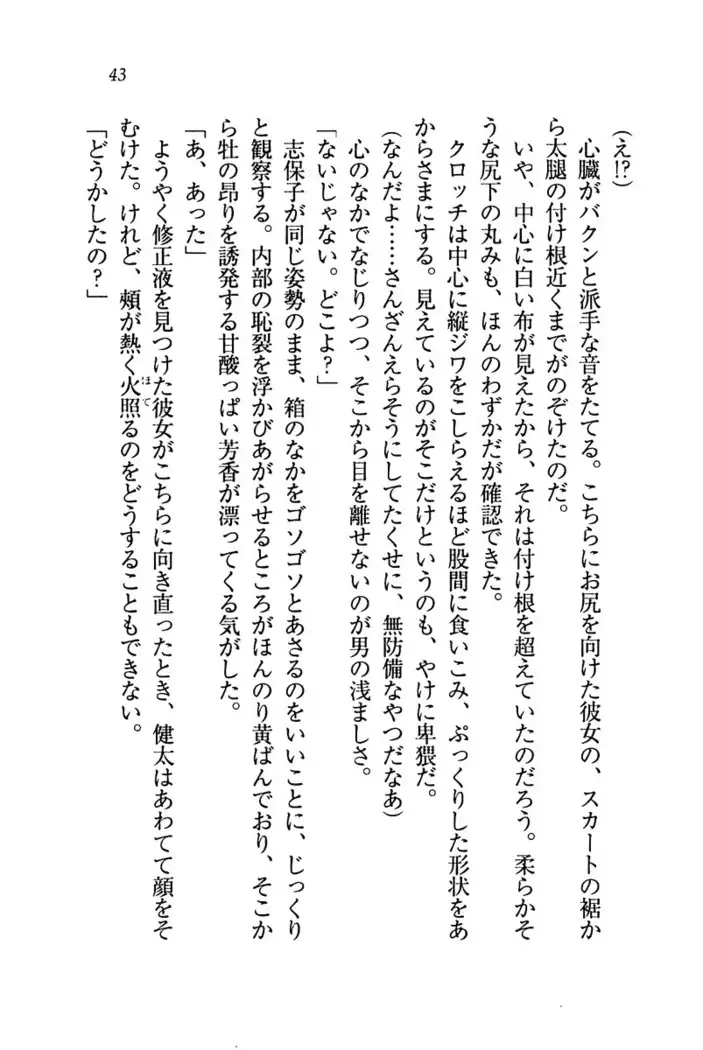 43
(え!?)
心臓がバクンと派手な音をたてる。こちらにお尻を向けた彼女の、スカートの裾か
ら太腿の付け根近くまでがのぞけたのだ。
いや、中心に白い布が見えたから、それは付け根を超えていたのだろう。柔らかそ
うな尻下の丸みも、ほんのわずかだが確認できた。
クロッチは中心に縦ジワをこしらえるほど股間に食いこみ、ぷっくりした形状をあ
からさまにする。見えているのがそこだけというのも、やけに卑猥だ。
(なんだよ……さんざんえらそうにしてたくせに、無防備なやつだなあ)
心のなかでなじりつつ、そこから目を離せないのが男の浅ましさ。
「ないじゃない。どこよ?」
志保子が同じ姿勢のまま、箱のなかをゴソゴソとあさるのをいいことに、じっくり
と観察する。内部の恥裂を浮かびあがらせるところがほんのり黄ばんでおり、そこか
ら牡の昂りを誘発する甘酸っぱい芳香が漂ってくる気がした。
「あ、あった」
ようやく修正液を見つけた彼女がこちらに向き直ったとき、健太はあわてて顔をそ
むけた。けれど、頰が熱く火照るのをどうすることもできない。
ほて
「どうかしたの?」